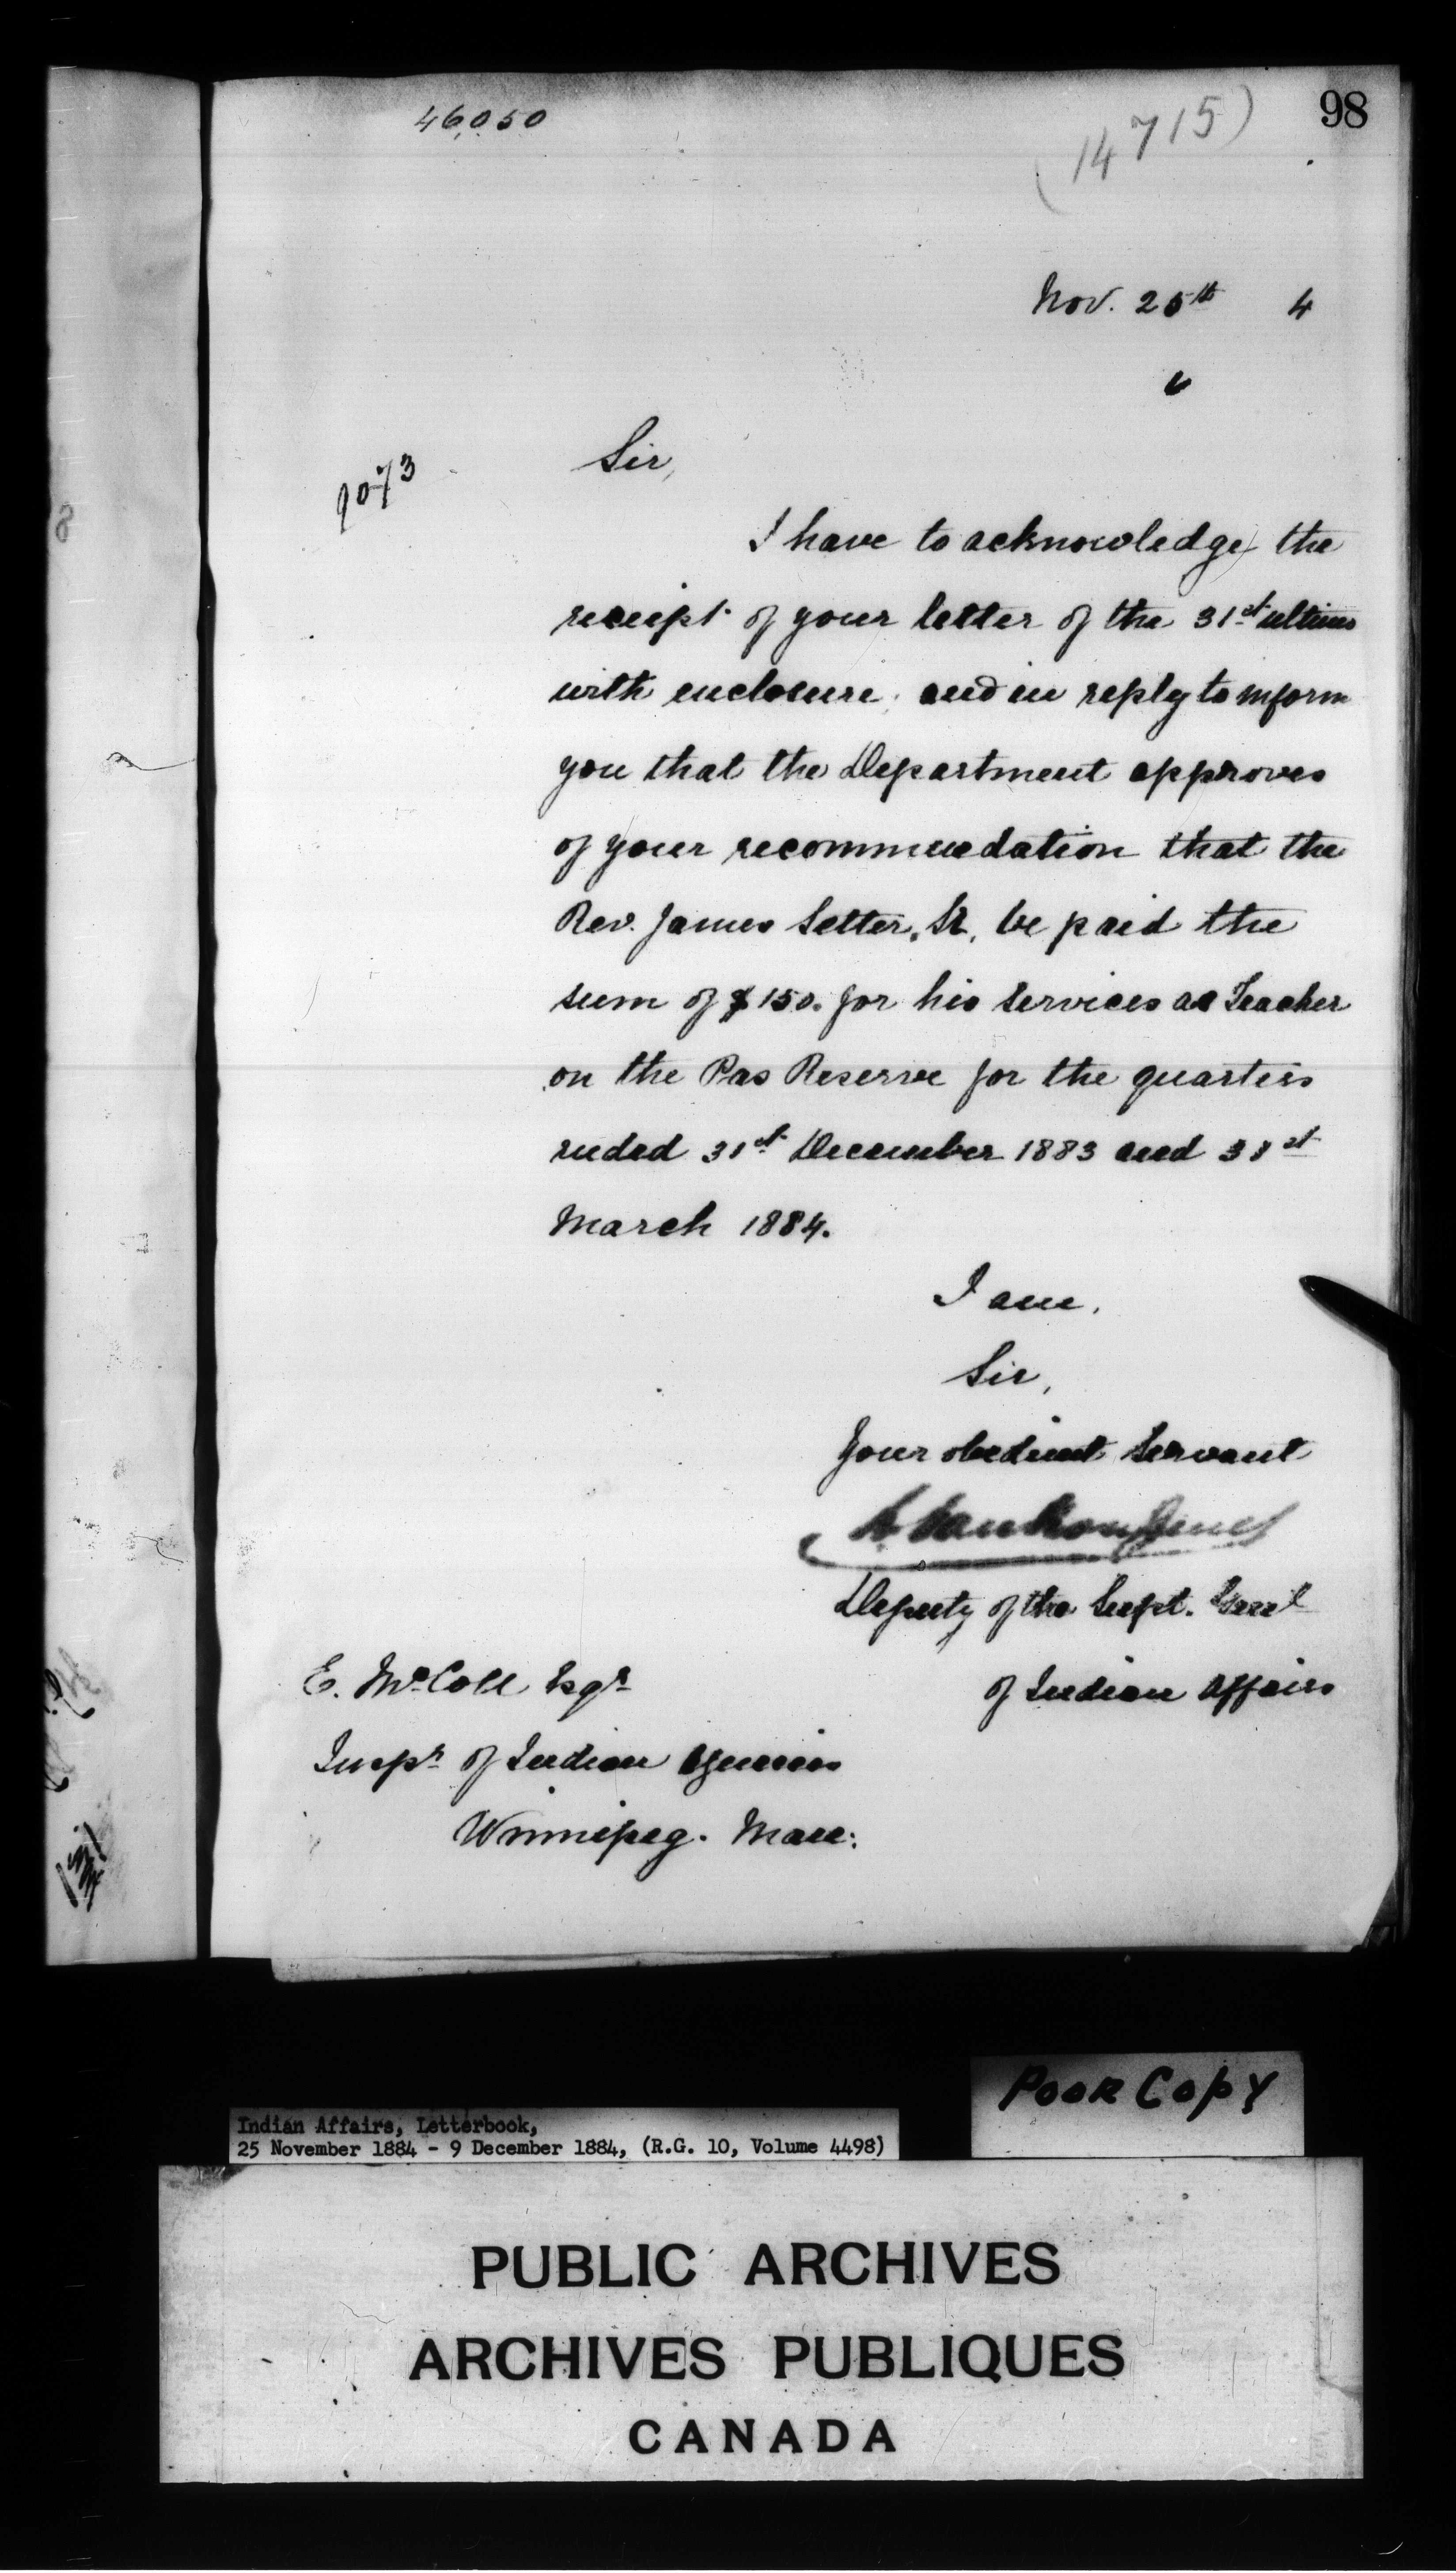 46,050
(14715)
98
Nov. 25th 4
Sir,
1073
I have to acknowledge the
receipt of your letter of the 31st ultimo
with enclosure, and in reply to inform
you that the Department approves
of your recommendation that the
Rev. James Setter, Sr, be paid the
sum of $150. for his services as Teacher
on the Pas Reserve for the quarters
ended 31st December 1883 and 31st
March 1884.
I am,
Sir,
Your obedient servant
L. Vankoughnet
Deputy of the Supt. Genl
of Indian Affairs
E. McColl Esqr
Inspr of Indian Agencies
Winnipeg. Man:
Poor Copy
Indian Affairs, Letterbook,
25 November 1884 - 9 December 1884, (R.G. 10, Volume 4498)
PUBLIC ARCHIVES
ARCHIVES PUBLIQUES
CANADA